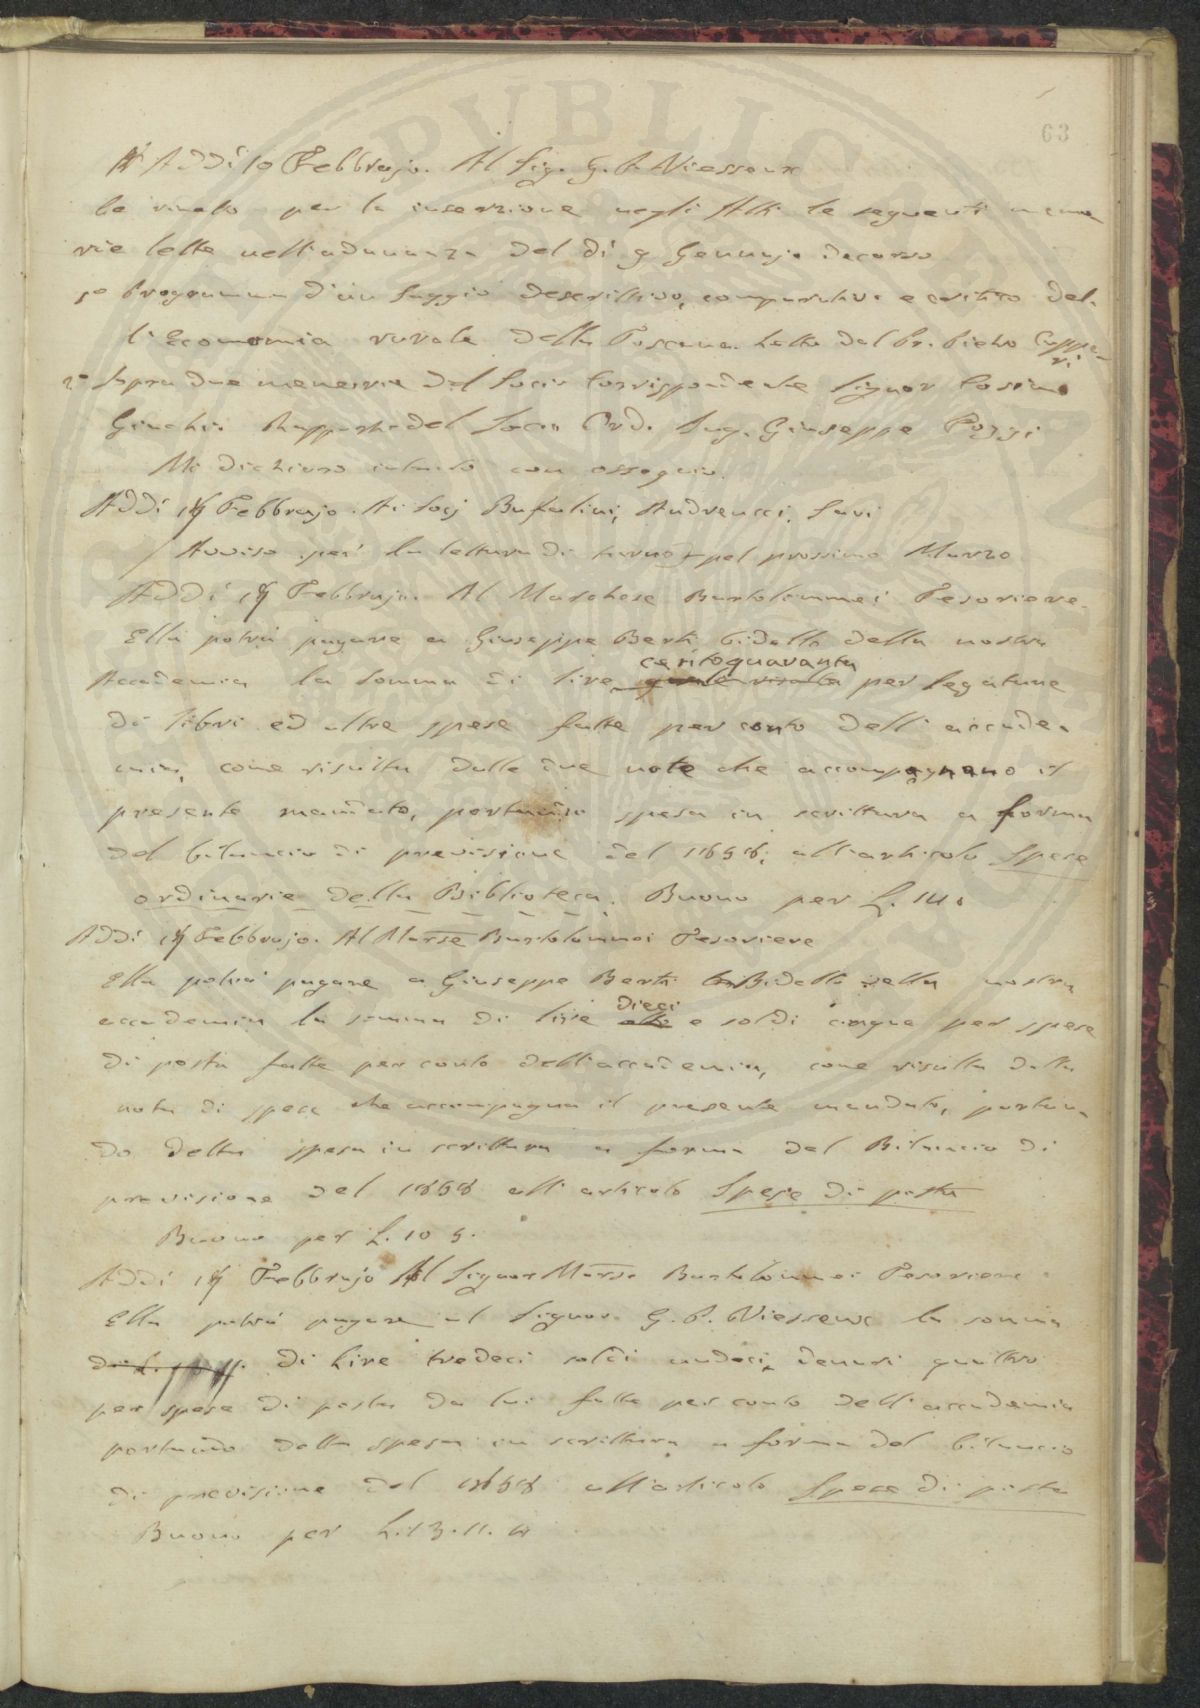 63
Addì 10 Febbrajo. Al Sig. G. P. Viesseux
Le rimetto per la inserzione negli Atti le seguenti memo
rie lette nell'adunanza del dì 9 Gennajo decorso
1o Programma d'un saggio descrittivo, comparativo e critico del-
l'Economia rurale della Toscana. Letto dal Pr. Pietro Cuppa
ri
2o Sopra due memorie del Socio Corrispondente Signor Cosimo
Rapporto del Socio Ord. Ing. Giuseppe Poggi
Mi dichiaro intanto con ossequio.
Addì Febbrajo. Ai Socj Bufalini, Andreucci, Savi
Avviso per la lettura di turno pel prossimo Marzo
Addì Febbrajo. Al Marchese Bartolommei Tesoriere.
Ella potrà pagare a Giuseppe Berti bidello della nostra
centoquaranta
Accademia la somma di lire per legature
di libri ed altre spese fatte per conto dell'accade-
mia, come risulta dalle due note che accompagnano il
presente mandato, portando spesa in scrittura a forma
del bilancio di previsione del 1858, all'articolo Spese
ordinarie della Biblioteca. Buono per L. 140
Addì Febbrajo. Al Marse Bartolommei Tesoriere
Ella potrà pagare a Giuseppe Berti Bidello della nostra
dieci
accademia la somma di lire otto e soldi cinque per spese
di posta fatte per conto dell'accademia, come risulta dalla
nota di spese che accompagna il presente mandato, portan-
do detta spesa in scrittura a forma del Bilancio di
previsione del 1858 all'articolo Spese di posta
Buono per L. 10 5.
Addì Febbrajo Al Signor Marse Bartolommei Tesoriere.
Ella potrà pagare al Signor G. P. Viesseux la somma
di Lire tredeci soldi undeci, denari quattro
per spese di posta da lui fatte per conto dell'accademia
portando detta spesa in scrittura a forma del bilancio
di previsione del 1858 all'articolo Spese di posta
Buono per L. 13. 11. 4